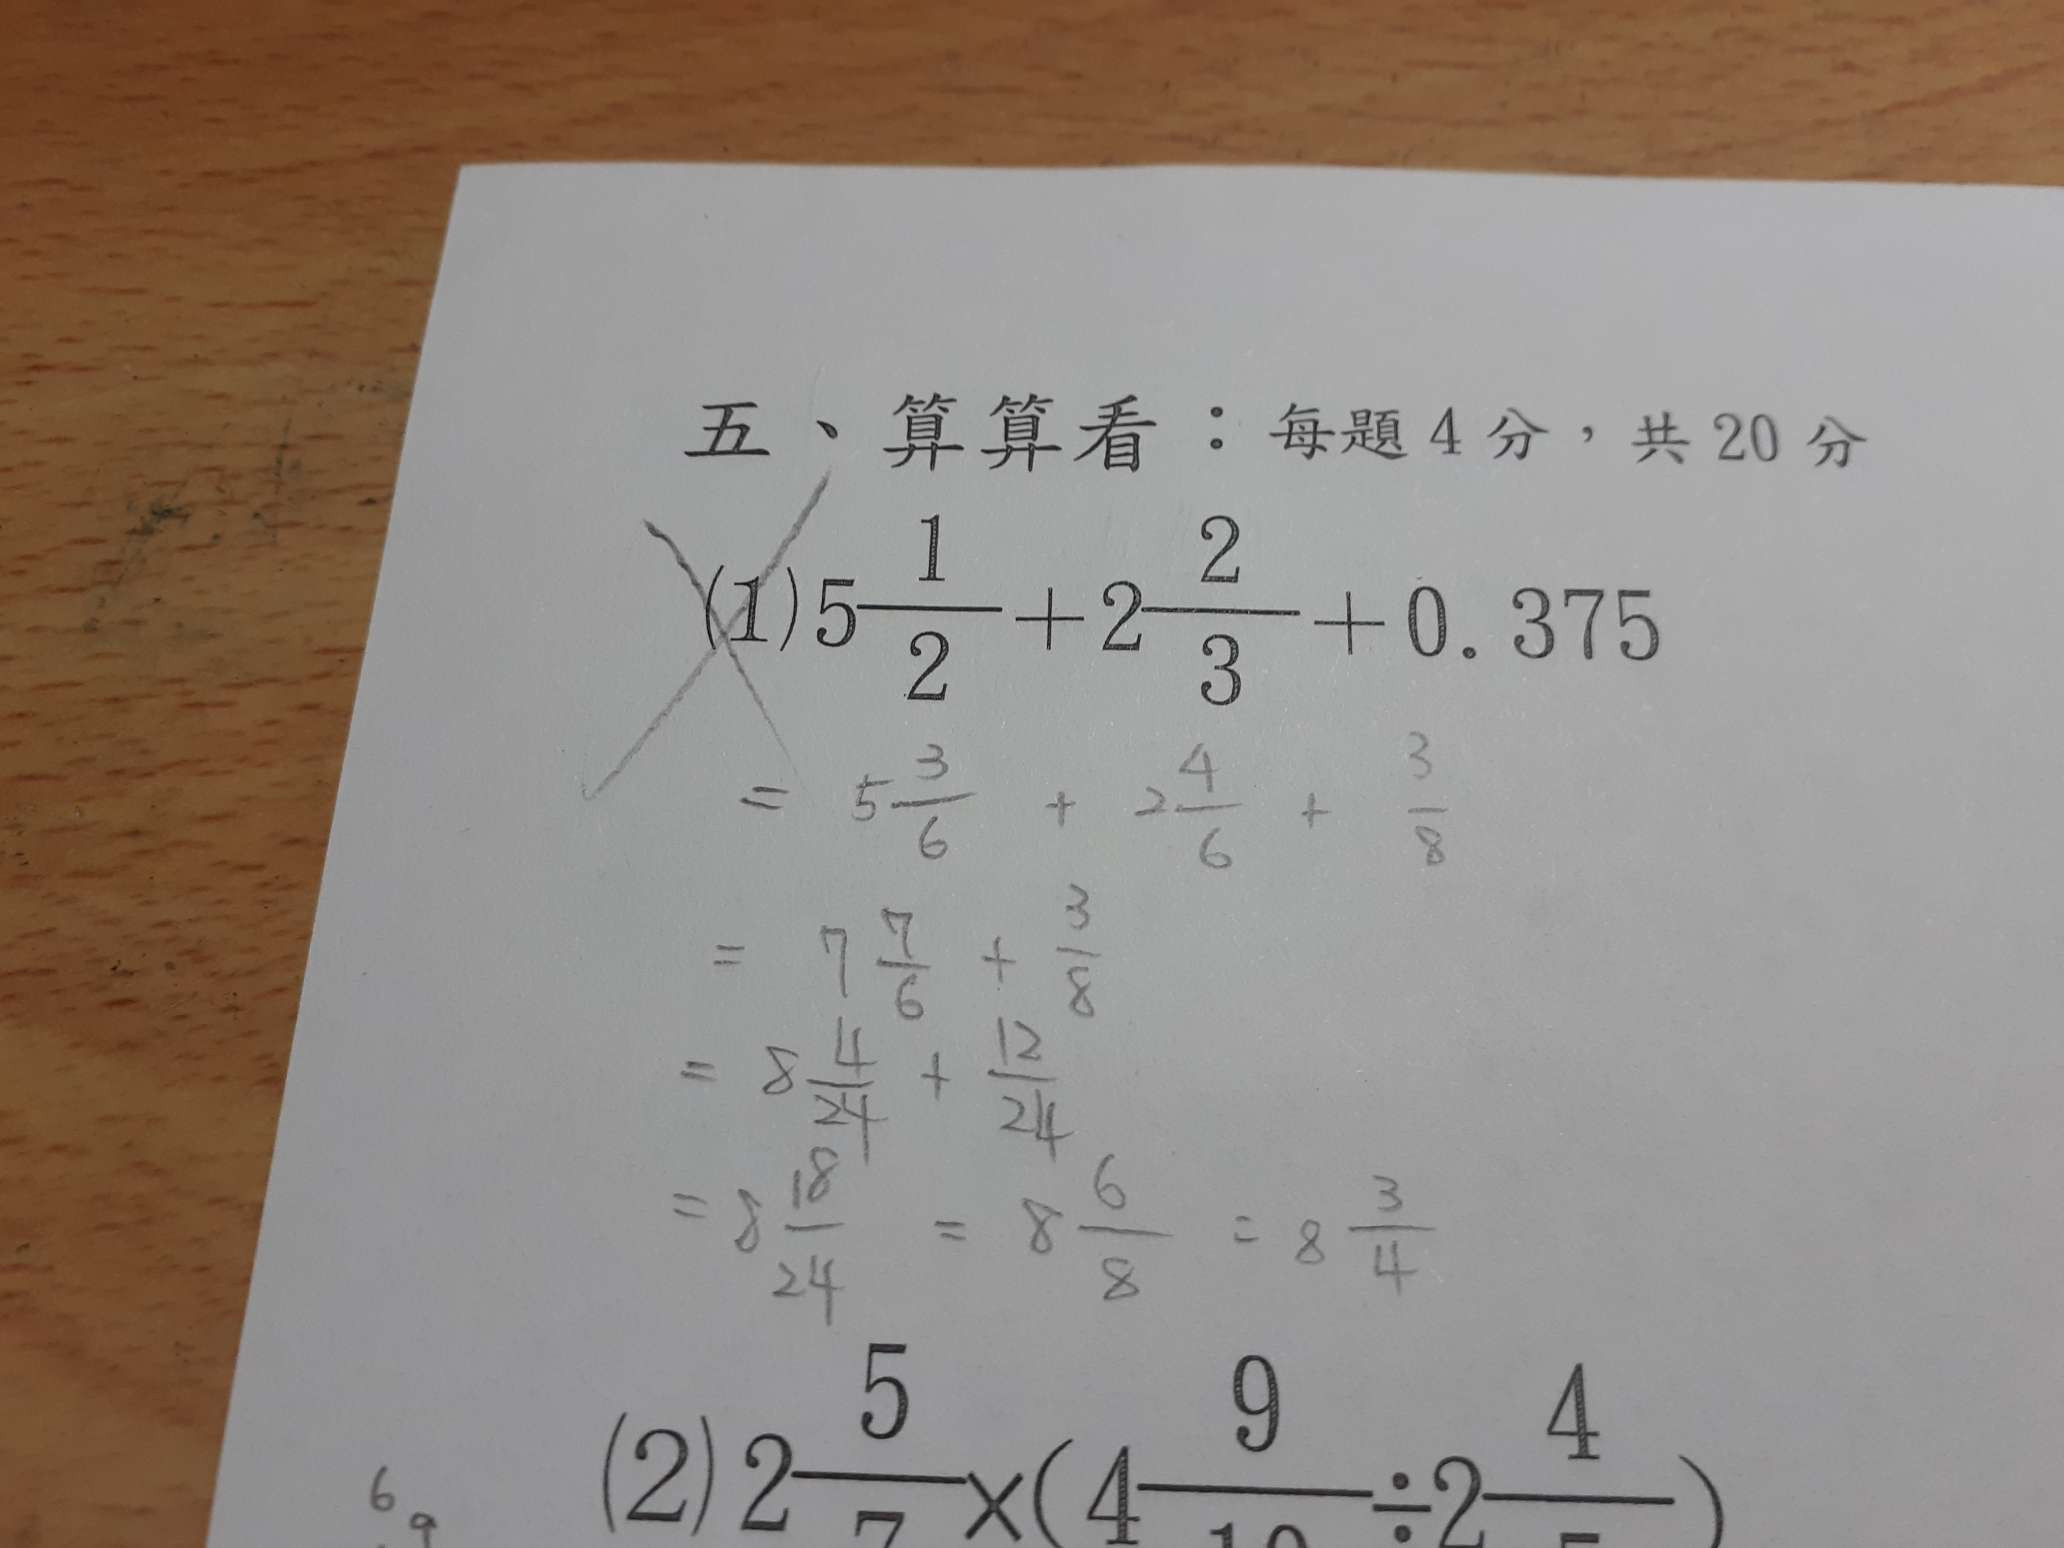 五、算算看：每題4分，共20分
(1) 5 1/2 + 2 2/3 + 0.375
= 5 3/6 + 2 4/6 + 3/8
= 7 7/6 + 3/8
= 8 4/24 + 12/24
= 8 18/24 = 8 6/8 = 8 3/4
(2) 2 5/7 × (4 9/10 ÷ 2 4/5)
6
9